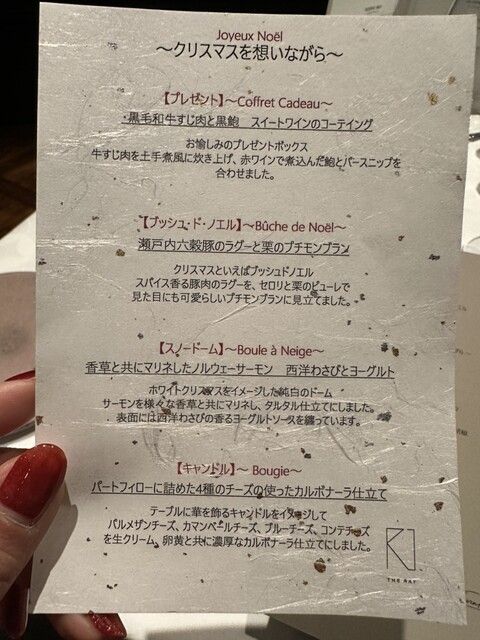 Joyeux Noël
～クリスマスを想いながら～
【プレゼント】～Coffret Cadeau～
・黒毛和牛すじ肉と黒鮑　スイートワインのコーテイング
お愉しみのプレゼントボックス
牛すじ肉を土手煮風に炊き上げ、赤ワインで煮込んだ鮑とパースニップを
合わせました。
【ブッシュ・ド・ノエル】～Bûche de Noël～
瀬戸内六穀豚のラグーと栗のプチモンブラン
クリスマスといえばブッシュドノエル
スパイス香る豚肉のラグーを、セロリと栗のピューレで
見た目にも可愛らしいプチモンブランに見立てました。
【スノードーム】～Boule à Neige～
香草と共にマリネしたノルウェーサーモン　西洋わさびとヨーグルト
ホワイトクリスマスをイメージした純白のドーム
サーモンを様々な香草と共にマリネし、タルタル仕立てにしました。
表面には西洋わさびの香るヨーグルトソースを纏っています。
【キャンドル】～ Bougie～
パートフィローに詰めた4種のチーズの使ったカルボナーラ仕立て
テーブルに華を飾るキャンドルをイメージして
パルメザンチーズ、カマンベールチーズ、ブルーチーズ、コンテチーズ
を生クリーム、卵黄と共に濃厚なカルボナーラ仕立てにしました。